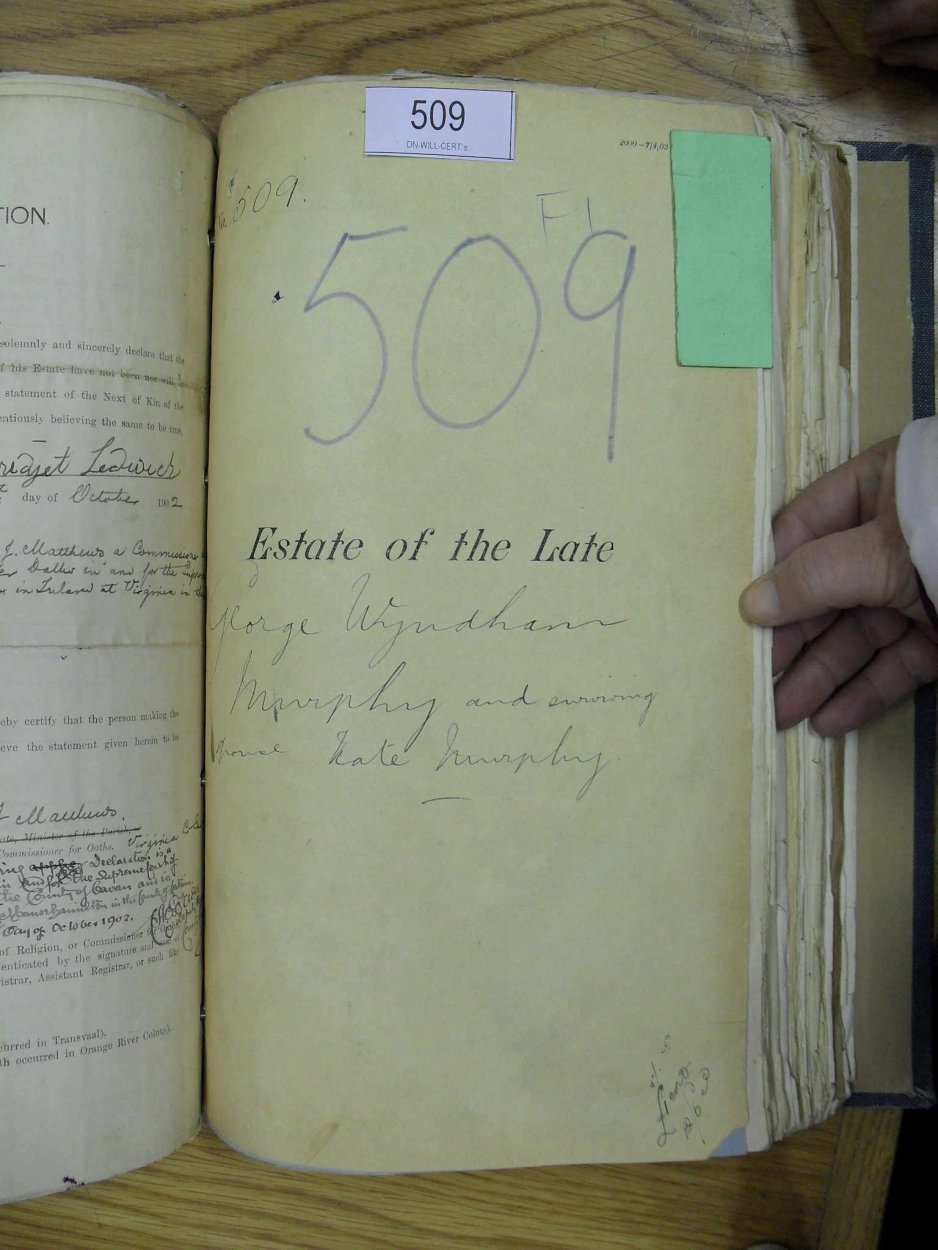 TION.
solemnly and sincerely declare that the
f his Estate have not been nor will
statement of the Next of Kin of the
entiously believing the same to be true,
ridget Ledwich
day of October 1902
J. Matthews a Commissioner
in and for the Supreme
in Ireland at Virginia in the
eby certify that the person making the
eve the statement given herein to be
Matthews.
ate, Minister of the Parish,
Commissioner for Oaths. Virginia
Declaration is a
in and for the Supreme Court of
the County of Cavan and is
Hamilton in the County of
day of October 1902.
of Religion, or Commissioner
enticated by the signature and
istrar, Assistant Registrar, or such like
curred in Transvaal).
th occurred in Orange River Colony).
509
DN-WILL-CERT's
2000-7/4/02
No. 509.
F1
509
Estate of the Late
George Wyndham
Murphy and surviving
spouse Kate Murphy